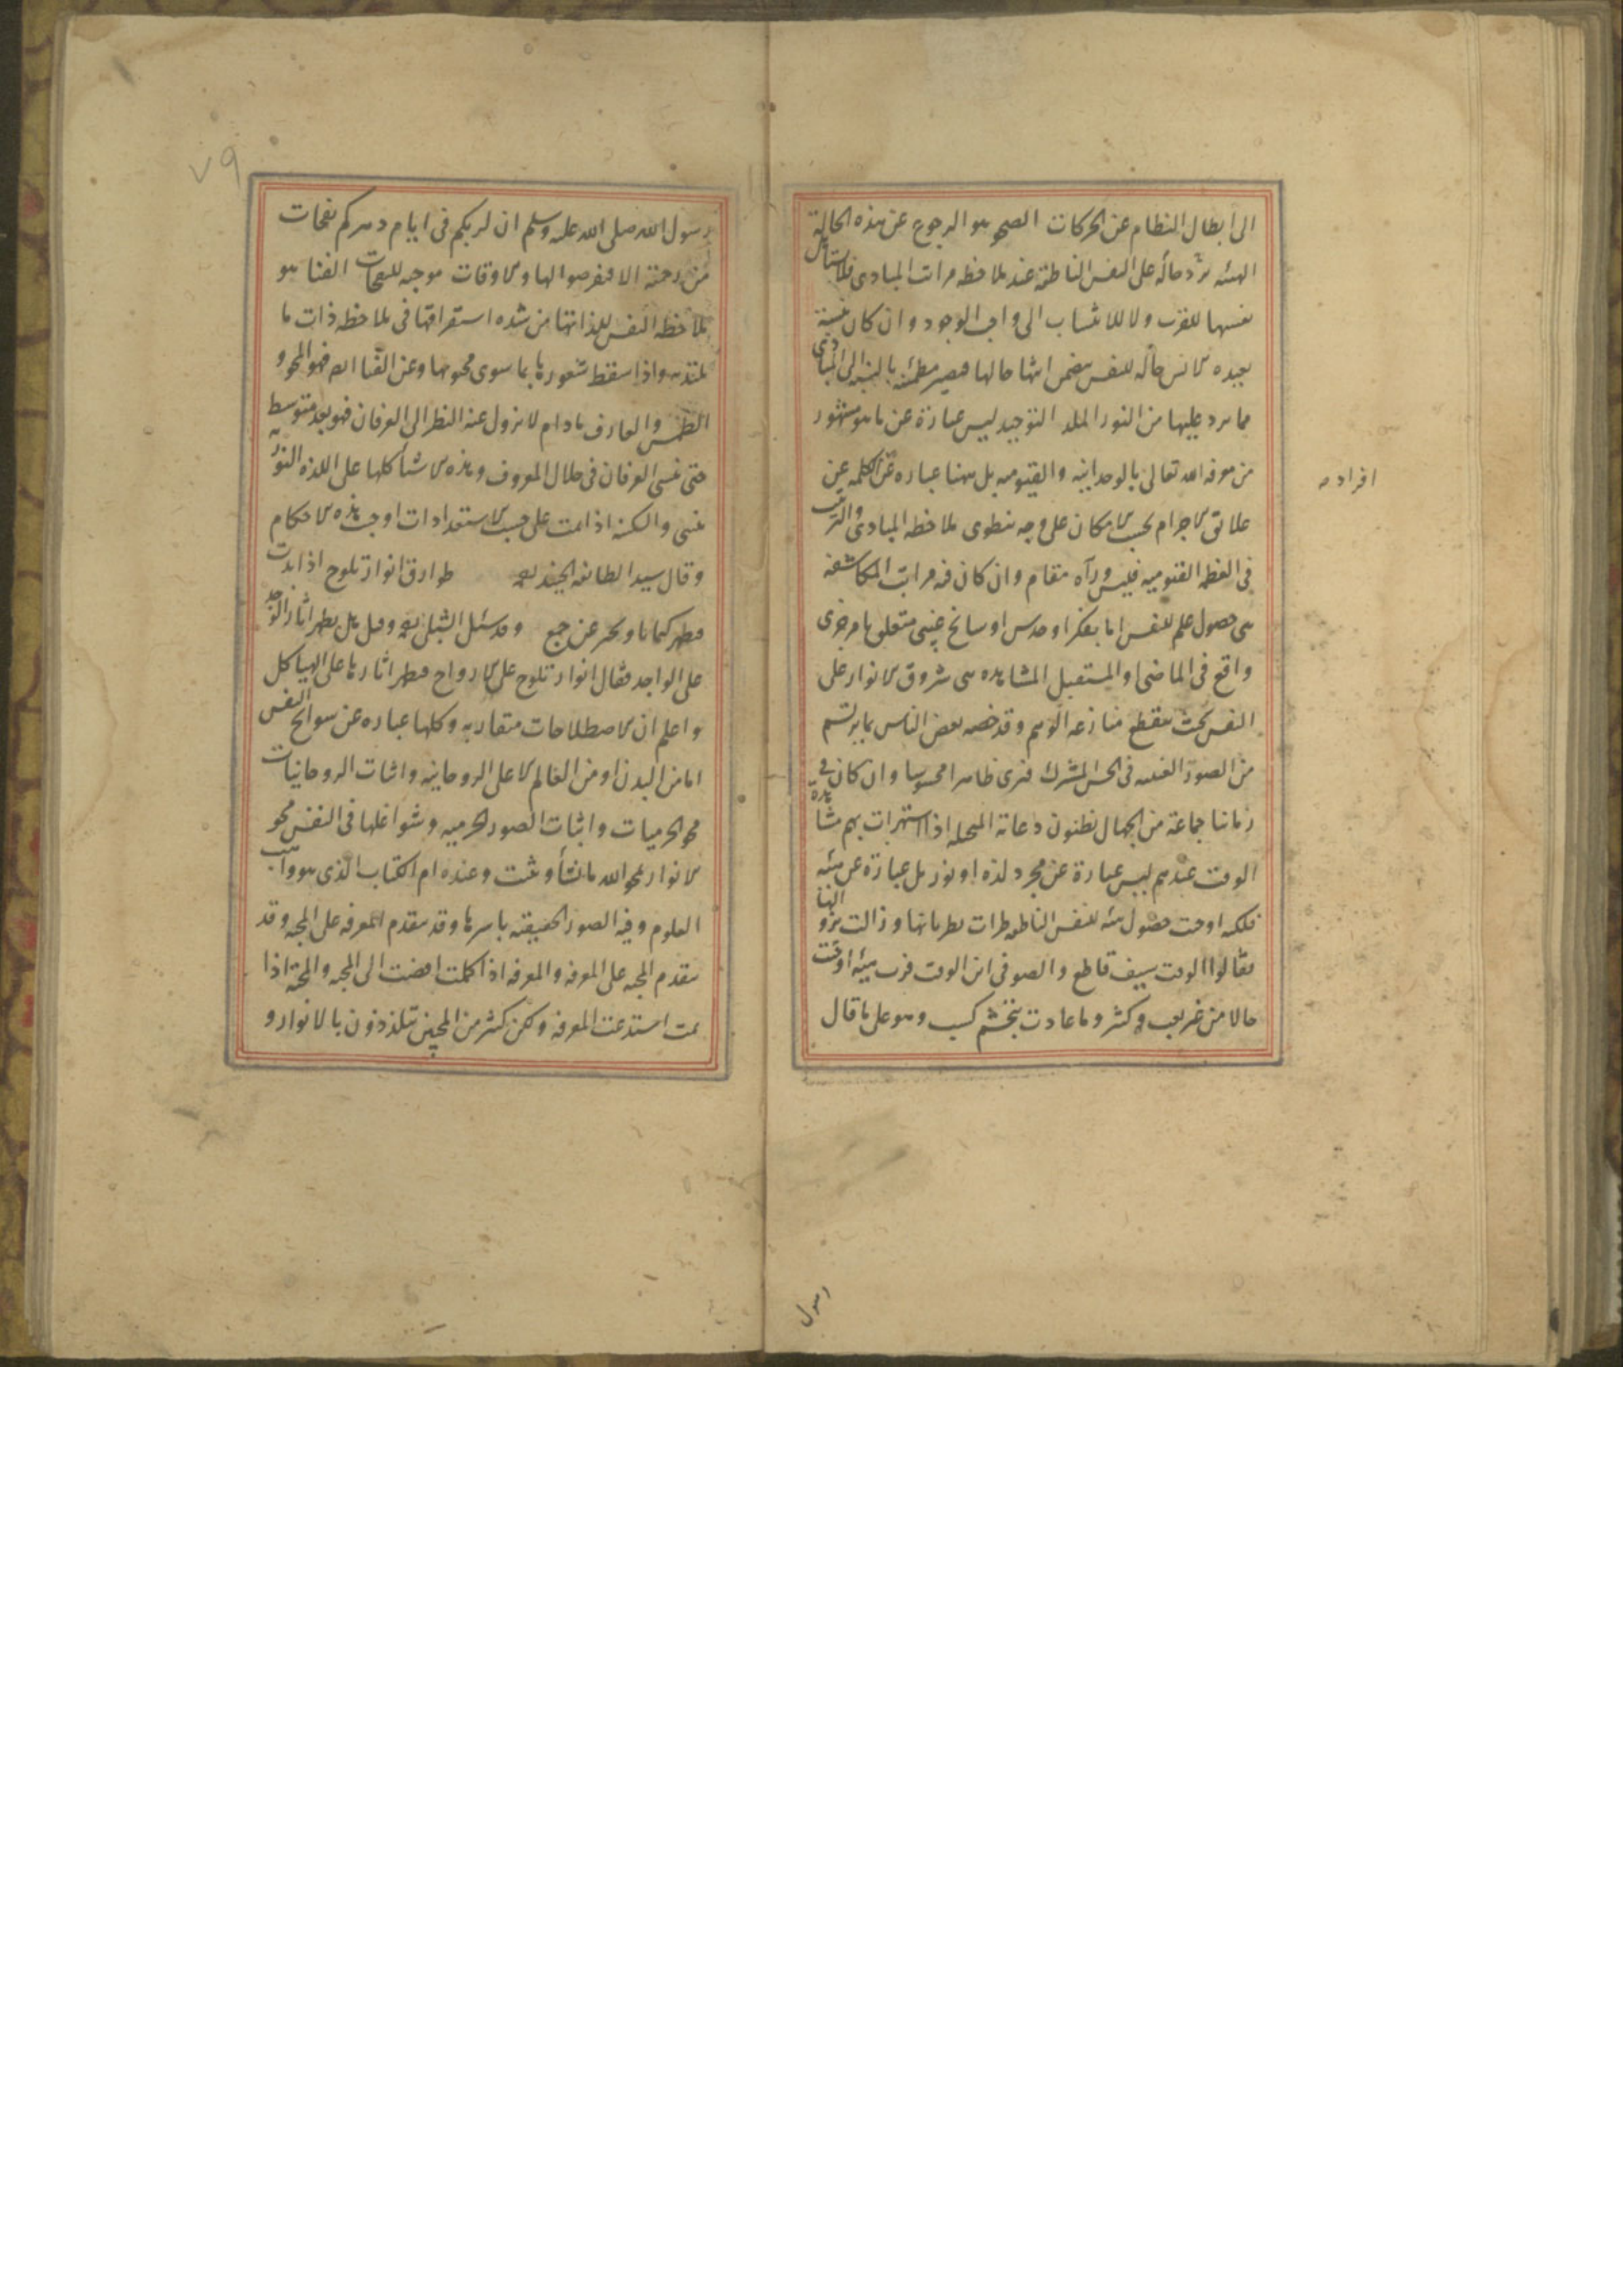 الى ابطال النظام عن الحركات الصحو هو الرجوع عن هذه الحالة
الهيبه ترد حاله على النفس الناطقة عند ملاحظه مراتب المبادى فلا تستأهل
نفسها للقرب ولا للانتساب الى واجب الوجود وان كان بنسبة
بعيده الانس حاله للنفس بتضمن ابتهاجا لها فيصير مطمئنه بالنسبه الى المبادى
مما يرد عليها من النور الملذ التوحيد ليس عبارة عن ما هو مشهور
من معرفه الله تعالى بالوحدانيه والقيوميه بل ههنا عباره عن الكلمه عن
افراد
علائق الاجرام بحسب الامكان على وجه ينطوى ملاحظه المبادى والترتب
فى العظمه القيوميه فليس ورآه مقام وان كان فيه مراتب المكاشفه
هى حصول علم للنفس اما بفكر او حدس او سانح غيبى متعلق بامر جزوى
واقع فى الماضى او المستقبل المشاهده هى شروق الانوار على
النفس بحيث ينقطع منازعه الوهم وقد خصه بعض الناس بما يرتسم
من الصور الغيبيه فى الحس المشترك فترى ظاهرا محسوسا وان كان فى
زماننا جماعة من الجهال يظنون دعابة المتخيله اذا استهزات بهم مشاهدة
الوقت عندهم ليس عبارة عن مجرد لذه او نور بل عبارة عن هيئه
فلكيه اوجبت حصول هيئه للنفس الناطقه طرات بطريانها وزالت بزوالها
فقالوا الوقت سيف قاطع والصوفى ابن الوقت فرب هيئه اوجبت
حالا من غريب وكثر وما عادت بتجشم كسب وهو على ما قال
رسول
٧٩
رسول الله صلى الله عليه وسلم ان لربكم فى ايام دهركم نفحات
من رحمته الا فتعرضوا لها والاوقات موجبه للنفحات الفنا هو
ملاحظه النفس للذاتها من شده استغراقها فى ملاحظه ذات ما
يلتذ به واذا سقط شعورها بما سوى محبوبها وعن الفنا ايضا فهو المحو و
الطمس والعارف ما دام لا يزول عنه النظر الى العرفان فهو بعد متوسط
حتى نسى العرفان فى جلال المعروف وهذه الاشيا كلها على اللذه النوريه
تبنى والسكينه اذا تمت على حسب الاستعدادات اوجبت هذه الاحكام
وقال سيد الطائفه الجنيد طوارق انوار تلوح اذا بدت
فيظهر كتمانا ويخبر عن جمع وقد سئل الشبلى وقيل هل يظهر اثار الوجد
على الواجد فقال انوار تلوح على الارواح فيظهر اثارها على الهياكل
واعلم ان الاصطلاحات متقاربه وكلها عباره عن سوانح النفس
اما من البدن او من العالم الاعلى الروحانيه واثبات الروحانيات
محو الجرميات واثبات الصور الجرميه وشواغلها فى النفس محو
الانوار يمحو الله ما يشأ ويثبت وعنده ام الكتاب الذى هو واهب
العلوم وفيه الصور الحقيقيه باسرها وقد يتقدم المعرفه على المحبه وقد
يتقدم المحبه على المعرفه والمعرفه اذا كملت افضت الى المحبه والمحبة اذا
تمت استدعت المعرفه ولكن كثير من المحبين يتلذذون بالانوار و